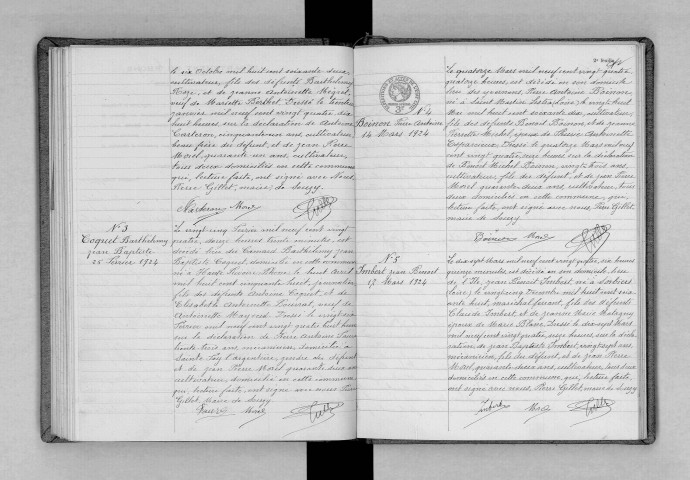 le six Octobre mil huit cent soixante deux
cultivateur, fils des défunts Barthélemy
et de Jeanne Antoinette
veuf de Mariette Berthet Dressé le
janvier mil neuf cent vingt quatre, dix
huit heures, sur la déclaration de Antoine
Carteron, cinquante un ans, cultivateur,
beau frère du défunt, et de Jean Pierre
Morel, quarante un ans, cultivateur,
tous deux domiciliés en cette commune
qui, lecture faite, ont signé avec Nous
Pierre Gillet, maire de Souzy.
Carteron Morel Gillet
N° 3
Coquet Barthélemy
Jean Baptiste
25 Février 1924
Le vingt cinq Février mil neuf cent vingt
quatre, heures trente minutes, est
décédé Barthélemy Jean
Baptiste Coquet, domicilié en cette commune
né à Haute Rivoire Rhône le huit Avril
mil huit cent cinquante huit, journalier
fils des défunts Antoine Coquet et de
Elisabeth Antoinette veuf de
Antoinette Mayoud Dressé le vingt six
Février mil neuf cent vingt quatre huit heures
sur la déclaration de Pierre Antoine
trente trois ans, domicilié à
Sainte Foy l'Argentière, gendre du défunt
et de Jean Pierre Morel quarante deux ans
cultivateur, domicilié en cette commune
qui, lecture faite, ont signé avec nous Pierre
Gillet, Maire de Souzy
Morel Gillet
N° 4
Boinon Pierre Antoine
14 Mars 1924
Le quatorze Mars mil neuf cent vingt quatre
quatorze heures, est décédé en son domicile
Pierre Antoine Boinon,
né à Saint Martin le vingt huit
Mai mil huit cent soixante dix, cultivateur,
fils des défunts Benoit Boinon, et de
Pierrette Michel, époux de Antoinette
Dressé le quatorze Mars mil neuf
cent vingt quatre, heures sur la déclaration
de Benoit Boinon, vingt huit ans,
cultivateur, fils du défunt, et de Jean Pierre
Morel quarante deux ans, cultivateur, tous
deux domiciliés en cette commune, qui,
lecture faite, ont signé avec nous, Pierre Gillet
maire de Souzy
Boinon Morel Gillet
N° 5
Imbert Jean Benoit
17 Mars 1924
Le dix sept Mars mil neuf cent vingt quatre, six heures
quinze minutes, est décédé en son domicile, lieu
de l'Ile, Jean Benoit Imbert, né à Sorbiers
(Loire) le vingt cinq Décembre mil huit cent soi
xante huit, maréchal ferrant, fils des défunts
Claude Imbert et de Jeanne Marie
époux de Marie Blanc Dressé le dix sept Mars
mil neuf cent vingt quatre, onze heures, sur la décla
ration de Jean Baptiste Imbert, vingt sept ans,
mécanicien, fils du défunt, et de Jean Pierre
Morel, quarante deux ans, cultivateur, tous deux
domiciliés en cette commune, qui, lecture faite,
ont signé avec nous, Pierre Gillet, maire de Souzy
Imbert Morel Gillet